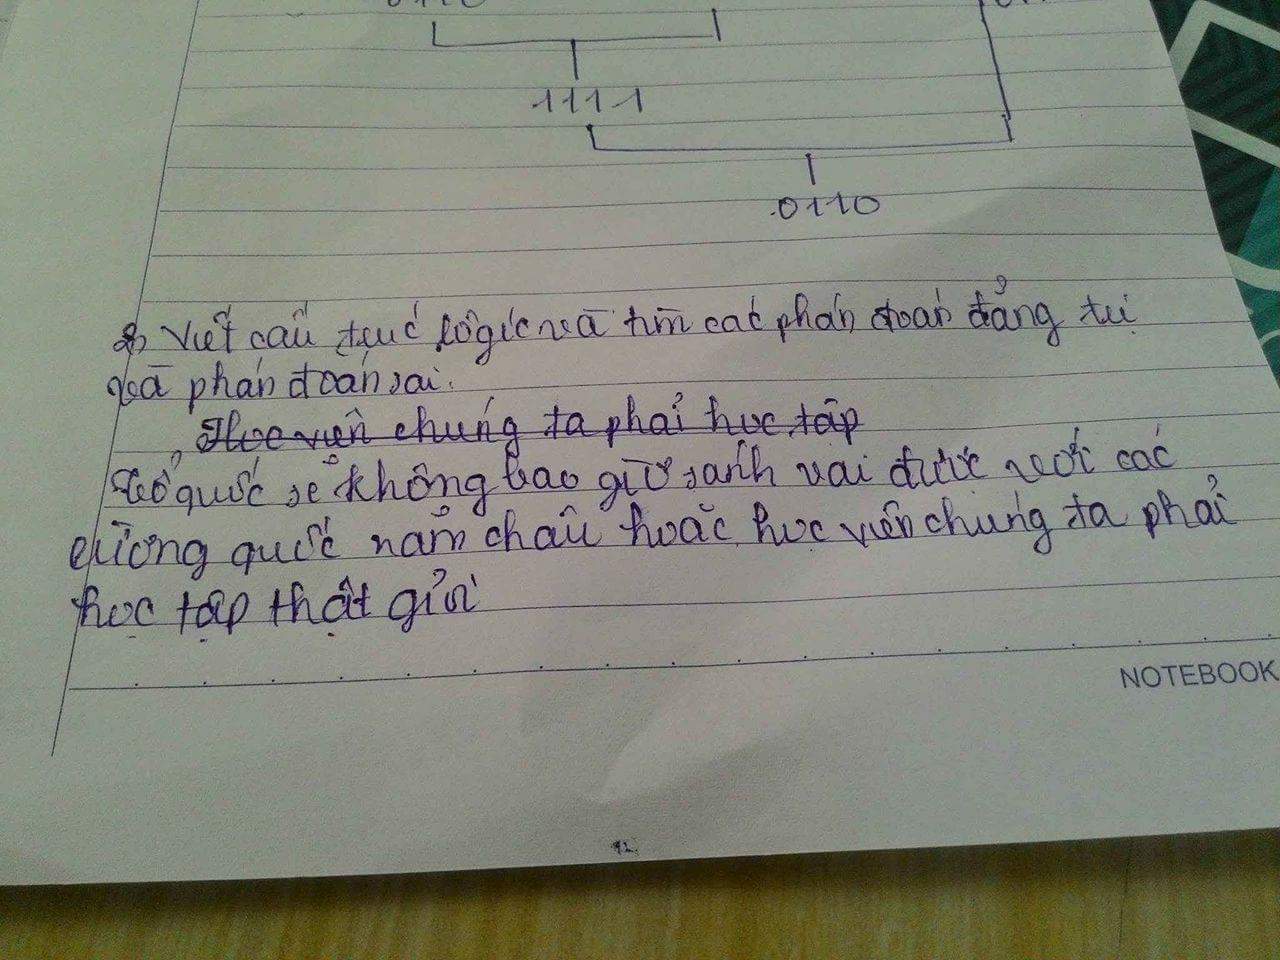 1111
0110
a) Viết cấu trúc lôgíc và tìm các phán đoán đẳng trị
và phán đoán sai.
Học viên chúng ta phải học tập
Tổ quốc sẽ không bao giờ sánh vai được với các
cường quốc năm châu hoặc học viên chúng ta phải
học tập thật giỏi
NOTEBOOK